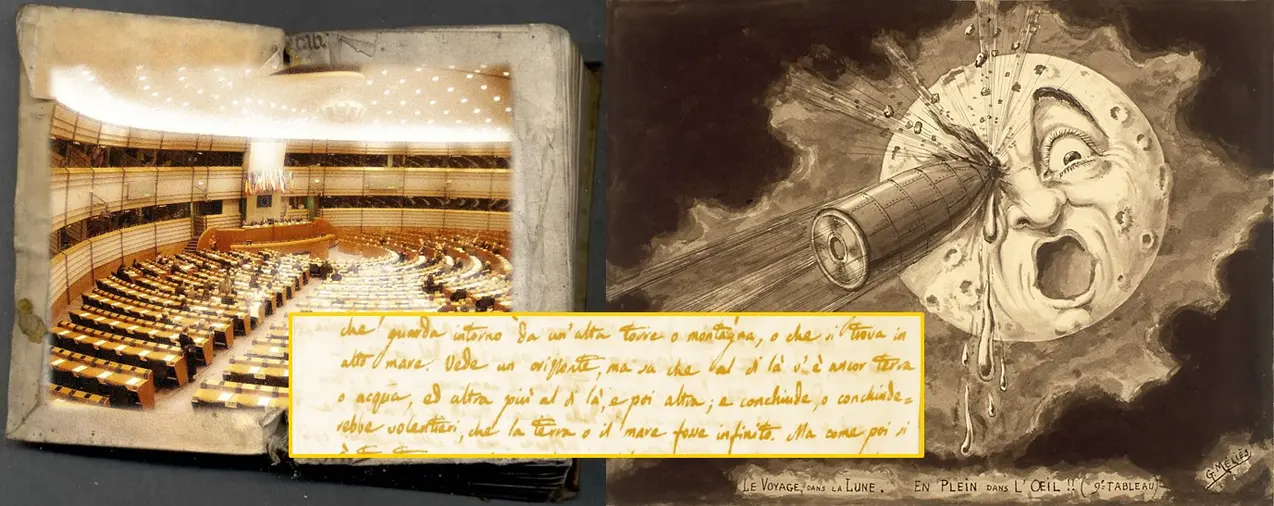 cab.
che guarda intorno da un'alta torre o montagna, o che si trova in
alto mare. Vede un orizzonte, ma sa che al di là v'è ancor terra
o acqua, ed altra più al di là, e poi altra; e conchiude, o conchiude=
rebbe volentieri, che la terra o il mare fosse infinito. Ma come poi si
LE VOYAGE DANS LA LUNE. EN PLEIN DANS L'OEIL!! (9e TABLEAU)
G. MÉLIÈS